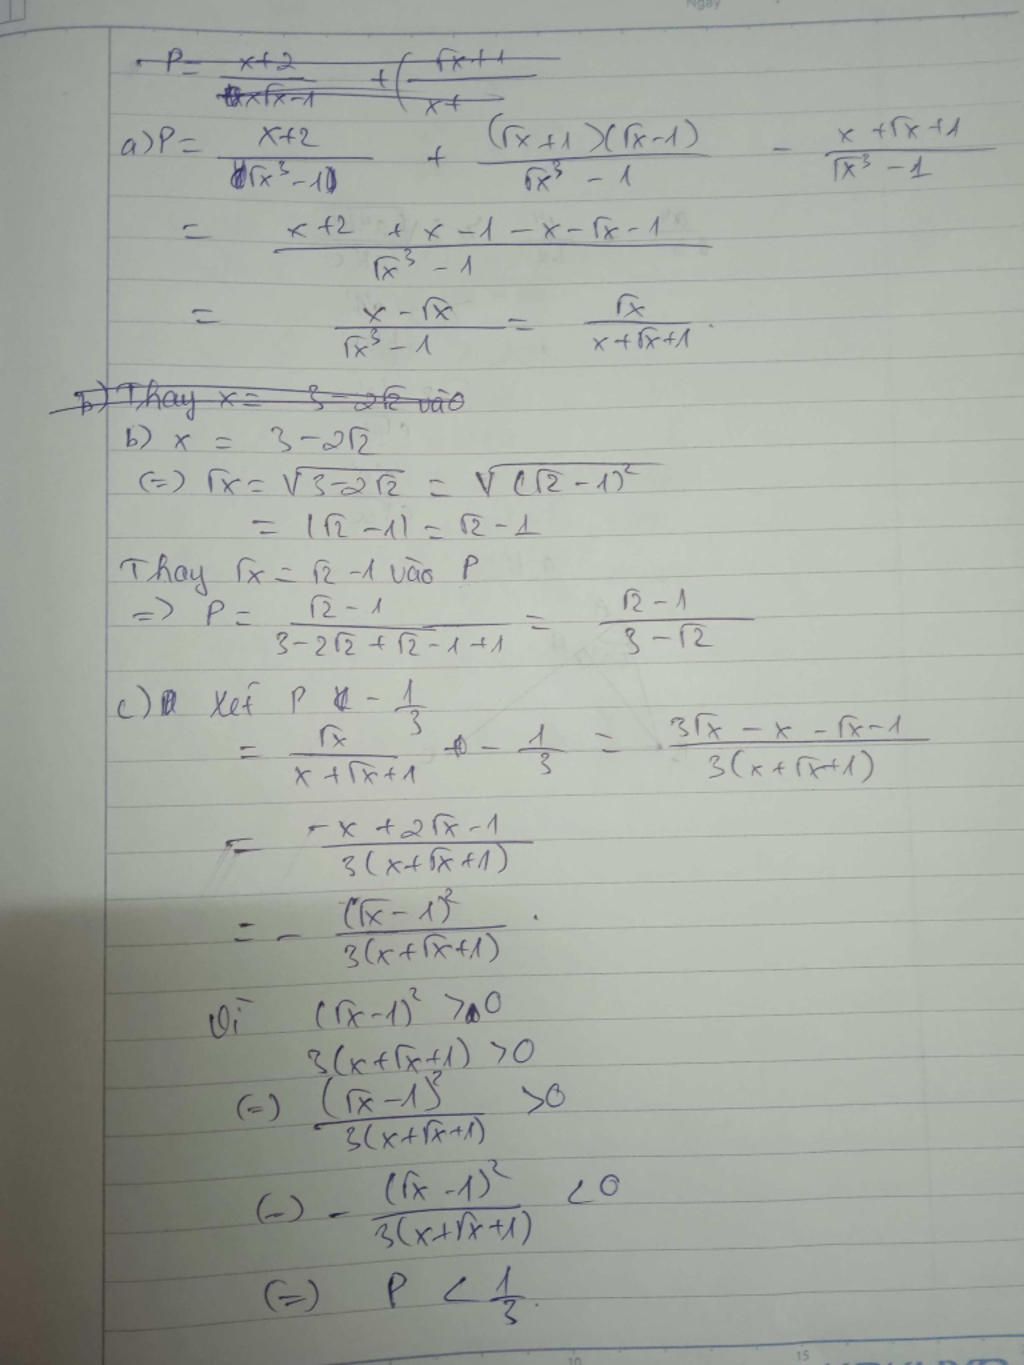 Ngày
P = x+2/x√x-1 + (√x+1/x+
a) P = x+2/√x³-1 + (√x+1)(√x-1)/√x³-1 - x+√x+1/√x³-1
= x+2+x-1-x-√x-1/√x³-1
= x-√x/√x³-1 = √x/x+√x+1.
b) Thay x = 3-2√2 vào
b) x = 3-2√2
(=) √x = √3-2√2 = √(√2-1)²
= |√2-1| = √2-1
Thay √x = √2-1 vào P
=> P = √2-1/3-2√2+√2-1+1 = √2-1/3-√2
c) Xét P - 1/3
= √x/x+√x+1 - 1/3 = 3√x-x-√x-1/3(x+√x+1)
= -x+2√x-1/3(x+√x+1)
= - (√x-1)²/3(x+√x+1).
Vì (√x-1)² > 0
3(x+√x+1) > 0
(=) (√x-1)²/3(x+√x+1) > 0
(=) - (√x-1)²/3(x+√x+1) < 0
(=) P < 1/3.
10 15